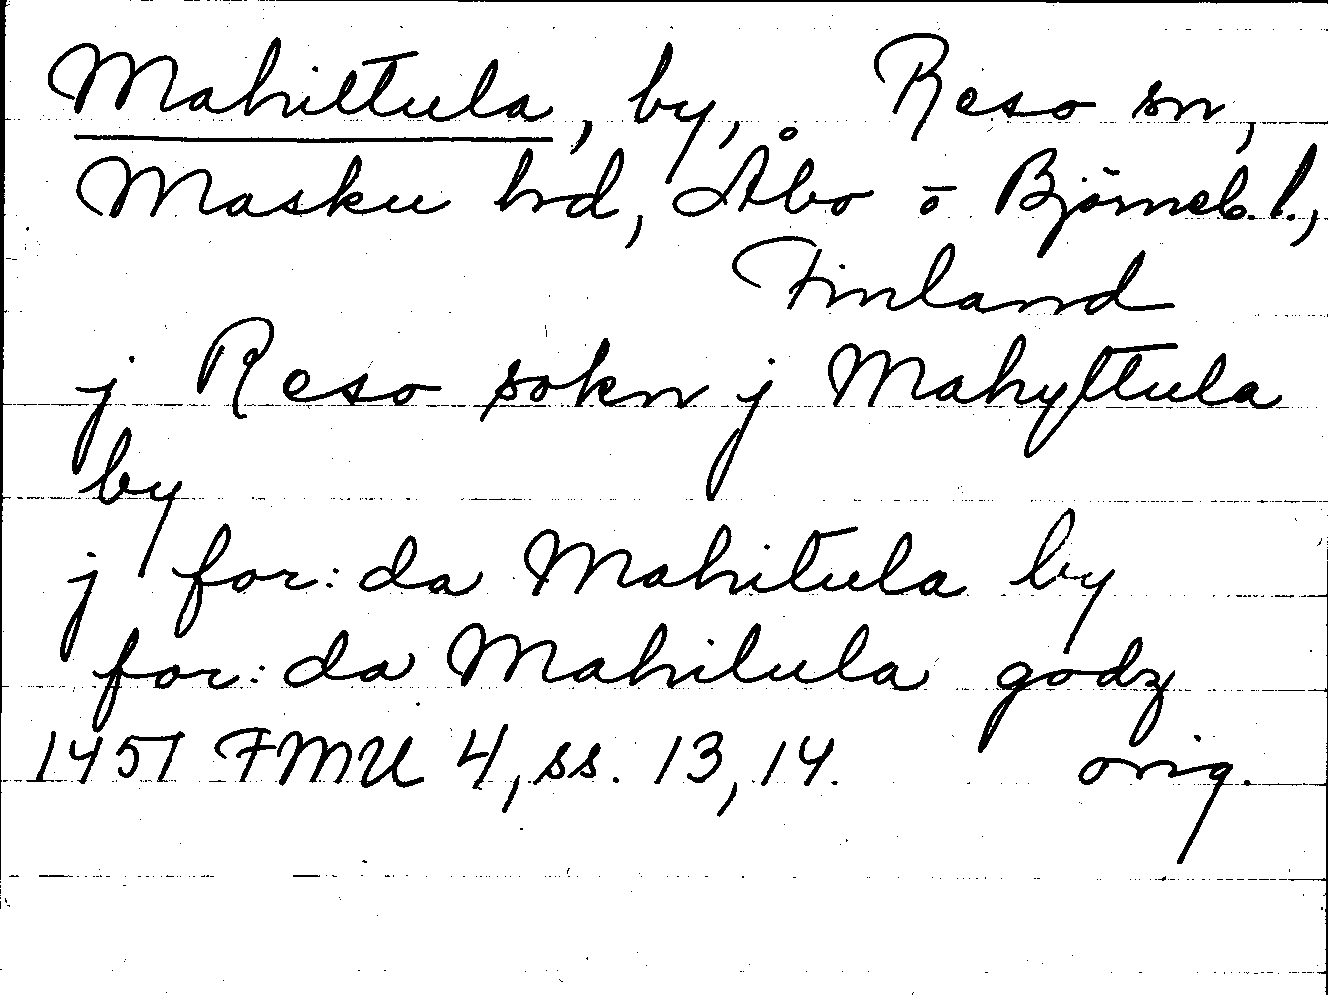 Mahittula, by, Reso sn,
Masku hd, Åbo o Björneb. l.,
Finland
j Reso sokn j Mahyttula
by
j for: da Mahitula by
for: da Mahitula godz
1451 FMU 4, ss. 13, 14. orig.